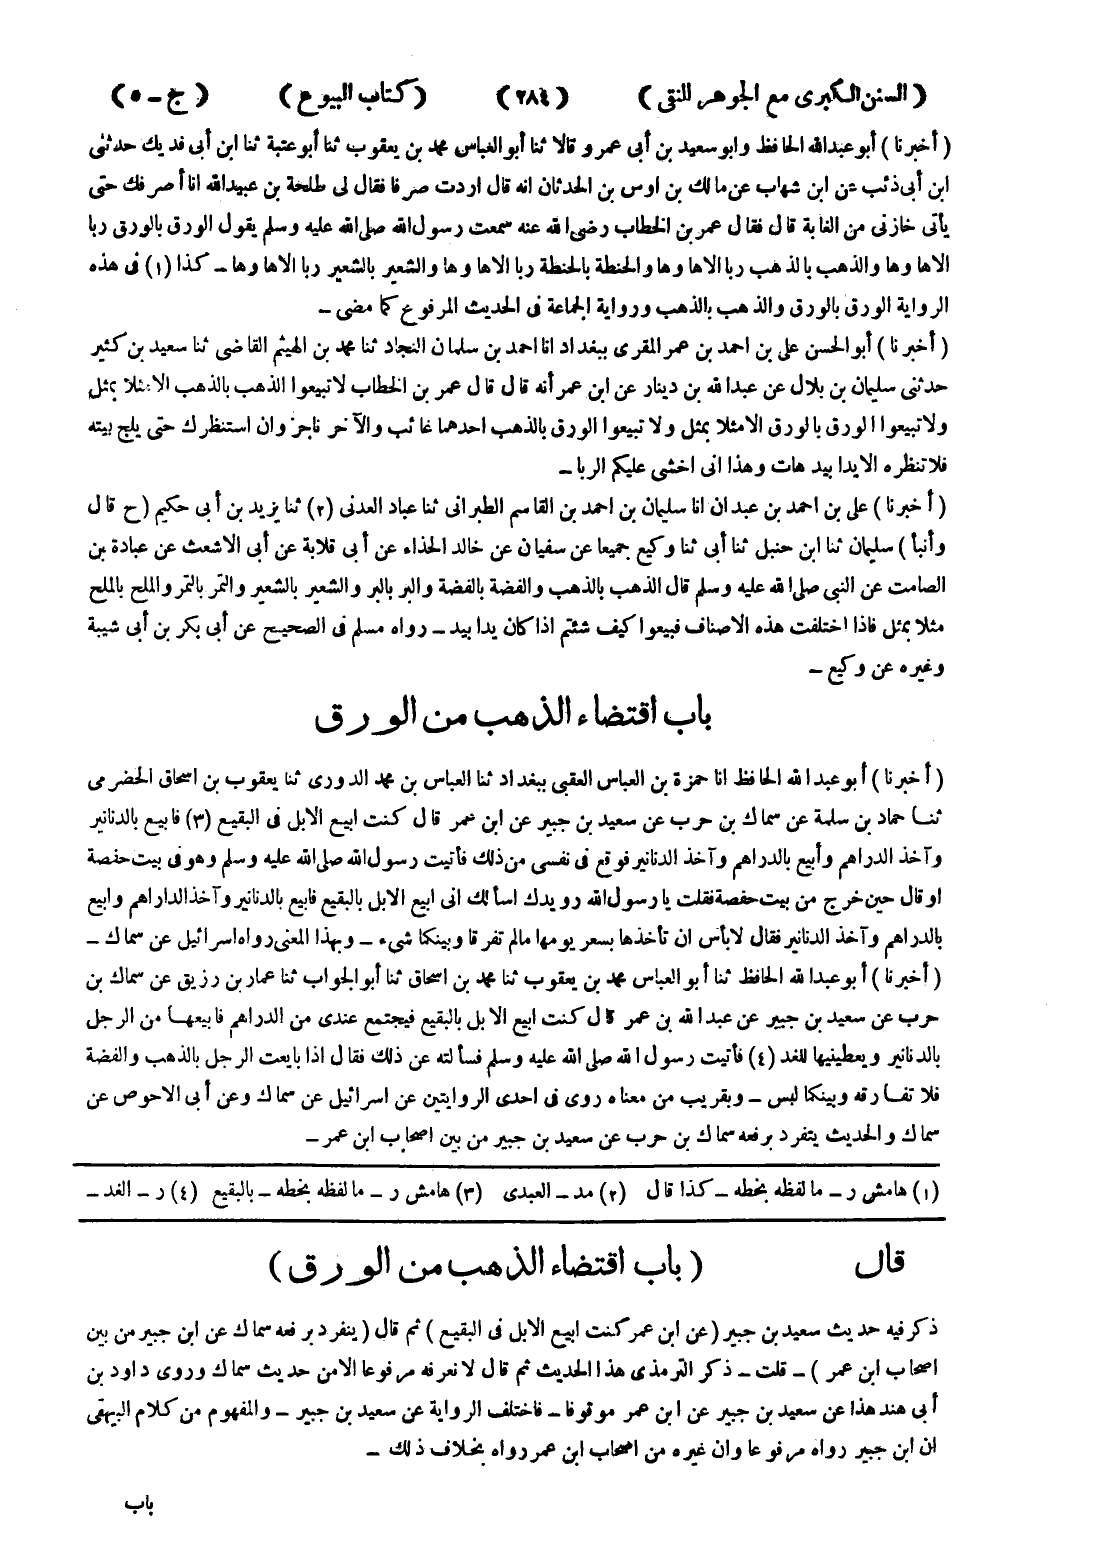 (السنن الكبرى مع الجوهر النقى) (٢٨٤) (كتاب البيوع) (ج - ٥)
(أخبرنا) أبو عبدالله الحافظ وابو سعيد بن أبى عمرو قالا ثنا أبو العباس محمد بن يعقوب ثنا أبو عتبة ثنا ابن أبى فديك حدثنى
ابن أبى ذئب عن ابن شهاب عن مالك بن اوس بن الحدثان انه قال اردت صرفا فقال لى طلحة بن عبيدالله انا أصرفك حتى
يأتى خازنى من الغابة قال فقال عمر بن الخطاب رضى الله عنه سمعت رسول الله صلى الله عليه وسلم يقول الورق بالورق ربا
الاها وها والذهب بالذهب ربا الاها وها والحنطة بالحنطة ربا الاها وها والشعير بالشعير ربا الاها وها - كذا (١) فى هذه
الرواية الورق بالورق والذهب بالذهب ورواية الجماعة فى الحديث المرفوع كما مضى -
(أخبرنا) أبو الحسن على بن احمد بن عمر المقرى ببغداد انا احمد بن سلمان النجاد ثنا محمد بن الهيثم القاضى ثنا سعيد بن كثير
حدثنى سليمان بن بلال عن عبدالله بن دينار عن ابن عمر أنه قال قال عمر بن الخطاب لا تبيعوا الذهب بالذهب الا مثلا بمثل
ولا تبيعوا الورق بالورق الا مثلا بمثل ولا تبيعوا الورق بالذهب احدهما غائب والآخر ناجز وان استنظرك حتى يلج بيته
فلا تنظره الا يدا بيد هات وهذا انى اخشى عليكم الربا -
(أخبرنا) على بن احمد بن عبدان انا سليمان بن احمد بن القاسم الطبرانى ثنا عباد العدنى (٢) ثنا يزيد بن أبى حكيم (ح قال
وأنبأ) سليمان ثنا ابن حنبل ثنا أبى ثنا وكيع جميعا عن سفيان عن خالد الحذاء عن أبى قلابة عن أبى الاشعث عن عبادة بن
الصامت عن النبى صلى الله عليه وسلم قال الذهب بالذهب والفضة بالفضة والبر بالبر والشعير بالشعير والتمر بالتمر والملح بالملح
مثلا بمثل فاذا اختلفت هذه الاصناف فبيعوا كيف شئتم اذا كان يدا بيد - رواه مسلم فى الصحيح عن أبى بكر بن أبى شيبة
وغيره عن وكيع -
باب اقتضاء الذهب من الورق
(أخبرنا) أبو عبدالله الحافظ انا حمزة بن العباس العقبى ببغداد ثنا العباس بن محمد الدورى ثنا يعقوب بن اسحاق الحضرمى
ثنا حماد بن سلمة عن سماك بن حرب عن سعيد بن جبير عن ابن عمر قال كنت ابيع الابل فى البقيع (٣) فابيع بالدنانير
وآخذ الدراهم وأبيع بالدراهم وآخذ الدنانير فوقع فى نفسى من ذلك فأتيت رسول الله صلى الله عليه وسلم وهو فى بيت حفصة
او قال حين خرج من بيت حفصة فقلت يا رسول الله رويدك اسألك انى ابيع الابل بالبقيع فابيع بالدنانير وآخذ الداراهم وابيع
بالدراهم وآخذ الدنانير فقال لا بأس ان تأخذها بسعر يومها مالم تفرقا وبينكما شىء - وبهذا المعنى رواه اسرائيل عن سماك -
(أخبرنا) أبو عبدالله الحافظ ثنا أبو العباس محمد بن يعقوب ثنا محمد بن اسحاق ثنا أبو الجواب ثنا عمار بن رزيق عن سماك بن
حرب عن سعيد بن جبير عن عبدالله بن عمر قال كنت ابيع الابل بالبقيع فيجتمع عندى من الدراهم فابيعها من الرجل
بالدنانير ويعطينيها للغد (٤) فأتيت رسول الله صلى الله عليه وسلم فسألته عن ذلك فقال اذا بايعت الرجل بالذهب والفضة
فلا تفارقه وبينكما لبس - وبقريب من معناه روى فى احدى الروايتين عن اسرائيل عن سماك وعن أبى الاحوص عن
سماك والحديث يتفرد برفعه سماك بن حرب عن سعيد بن جبير من بين اصحاب ابن عمر -
(١) هامش ر - ما لفظه بخطه - كذا قال (٢) مد - العبدى (٣) هامش ر - ما لفظه بخطه - بالبقيع (٤) ر - الغد -
قال (باب اقتضاء الذهب من الورق)
ذكر فيه حديث سعيد بن جبير (عن ابن عمر كنت ابيع الابل فى البقيع) ثم قال (ينفرد برفعه سماك عن ابن جبير من بين
اصحاب ابن عمر) - قلت - ذكر الترمذى هذا الحديث ثم قال لا نعرفه مرفوعا الا من حديث سماك وروى داود بن
أبى هند هذا عن سعيد بن جبير عن ابن عمر موقوفا - فاختلف الرواية عن سعيد بن جبير - والمفهوم من كلام البيهقى
ان ابن جبير رواه مرفوعا وان غيره من اصحاب ابن عمر رواه بخلاف ذلك -
باب